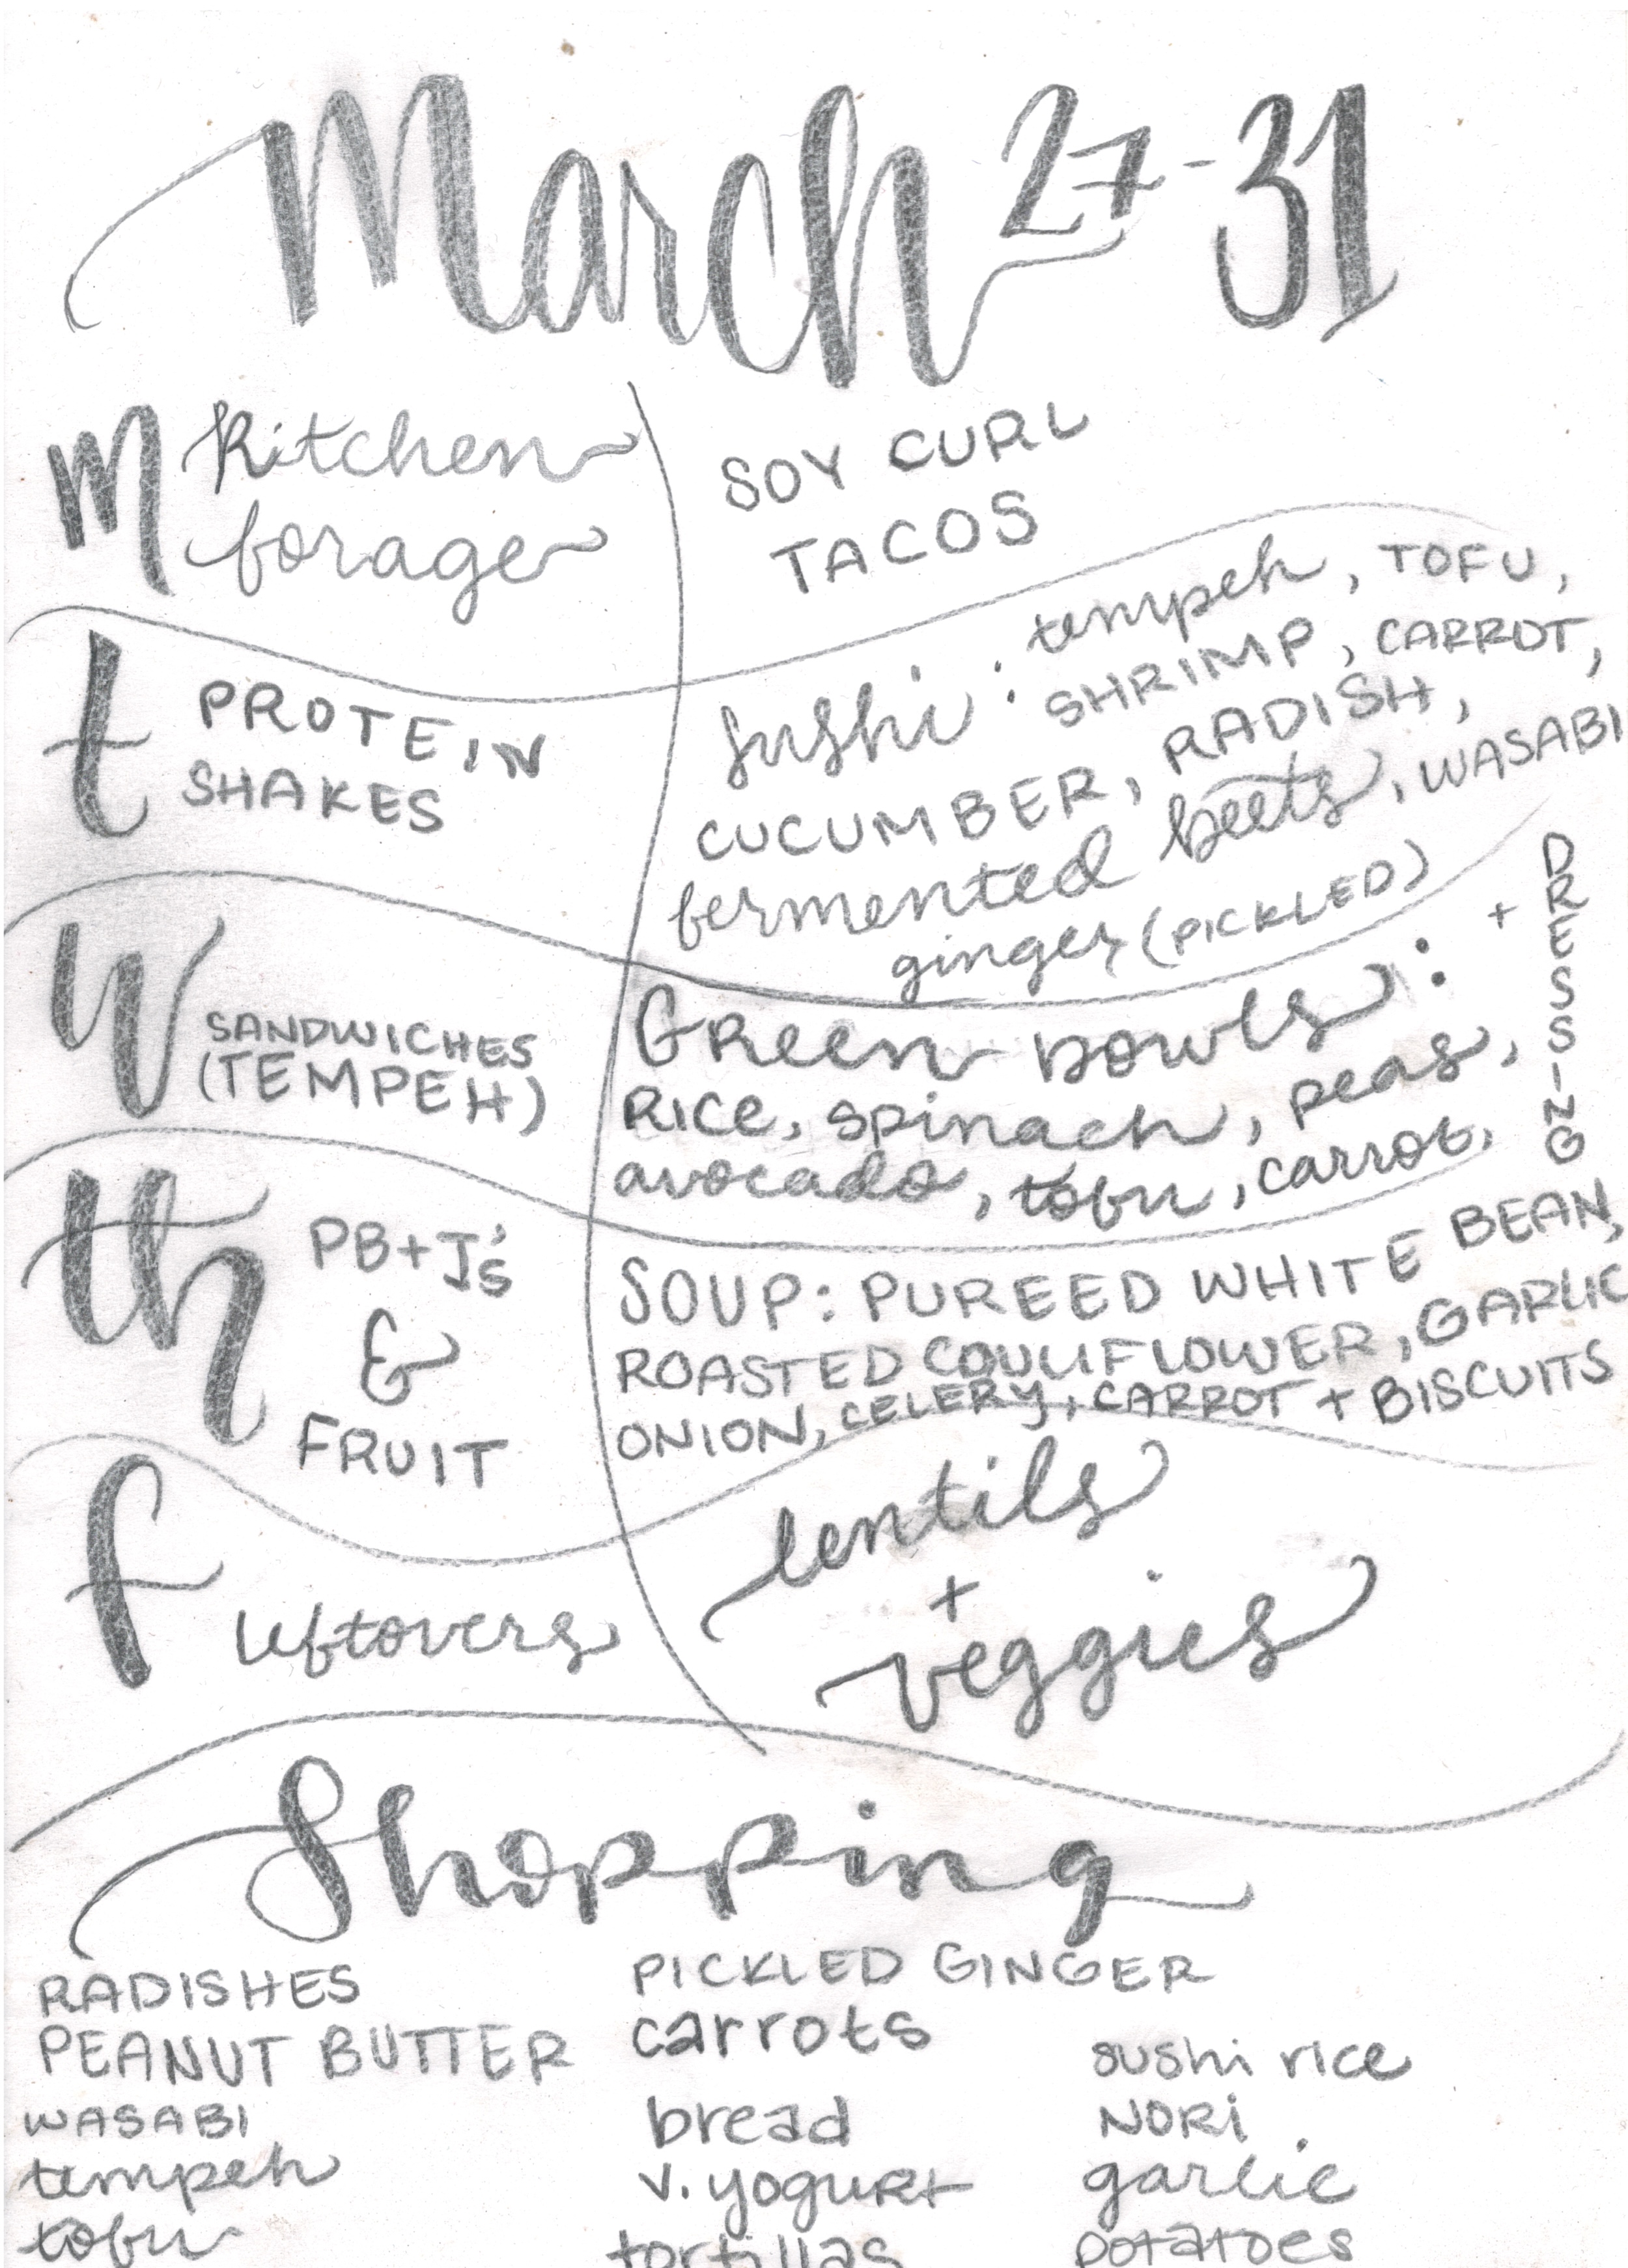 March 27-31
M kitchen
forage
SOY CURL
TACOS
t PROTEIN
SHAKES
sushi: tempeh, TOFU,
SHRIMP, CARROT,
CUCUMBER, RADISH,
fermented beets, WASABI
ginger (PICKLED)
W SANDWICHES
(TEMPEH)
Green bowls: + DRESSING
RICE, spinach, peas,
avocado, tofu, carrot,
th PB+J's
&
FRUIT
SOUP: PUREED WHITE BEAN,
ROASTED COULIFLOWER, GARLIC
ONION, CELERY, CARROT + BISCUITS
f leftovers
lentils
+
veggies
Shopping
RADISHES
PEANUT BUTTER
WASABI
tempeh
tofu
PICKLED GINGER
carrots
bread
v. yogurt
tortillas
sushi rice
NORI
garlic
potatoes